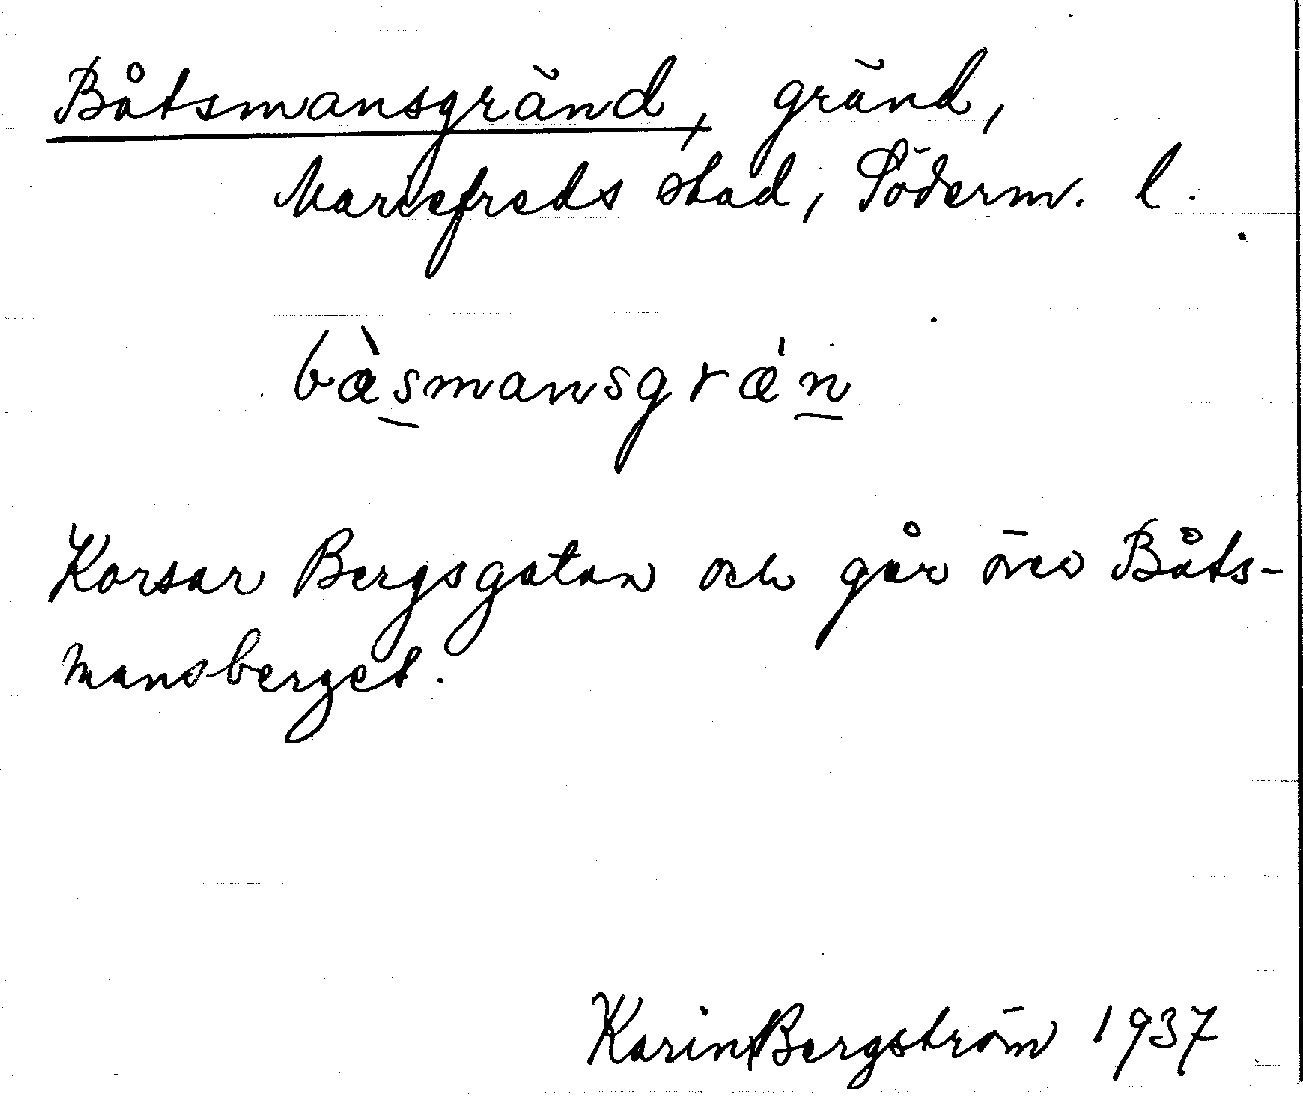 Båtsmansgränd, gränd,
Mariefreds stad, Söderm. l.
bæ̀smansgrǽn
Korsar Bergsgatan och går över Båts-
mansberget.
Karin Bergström 1937